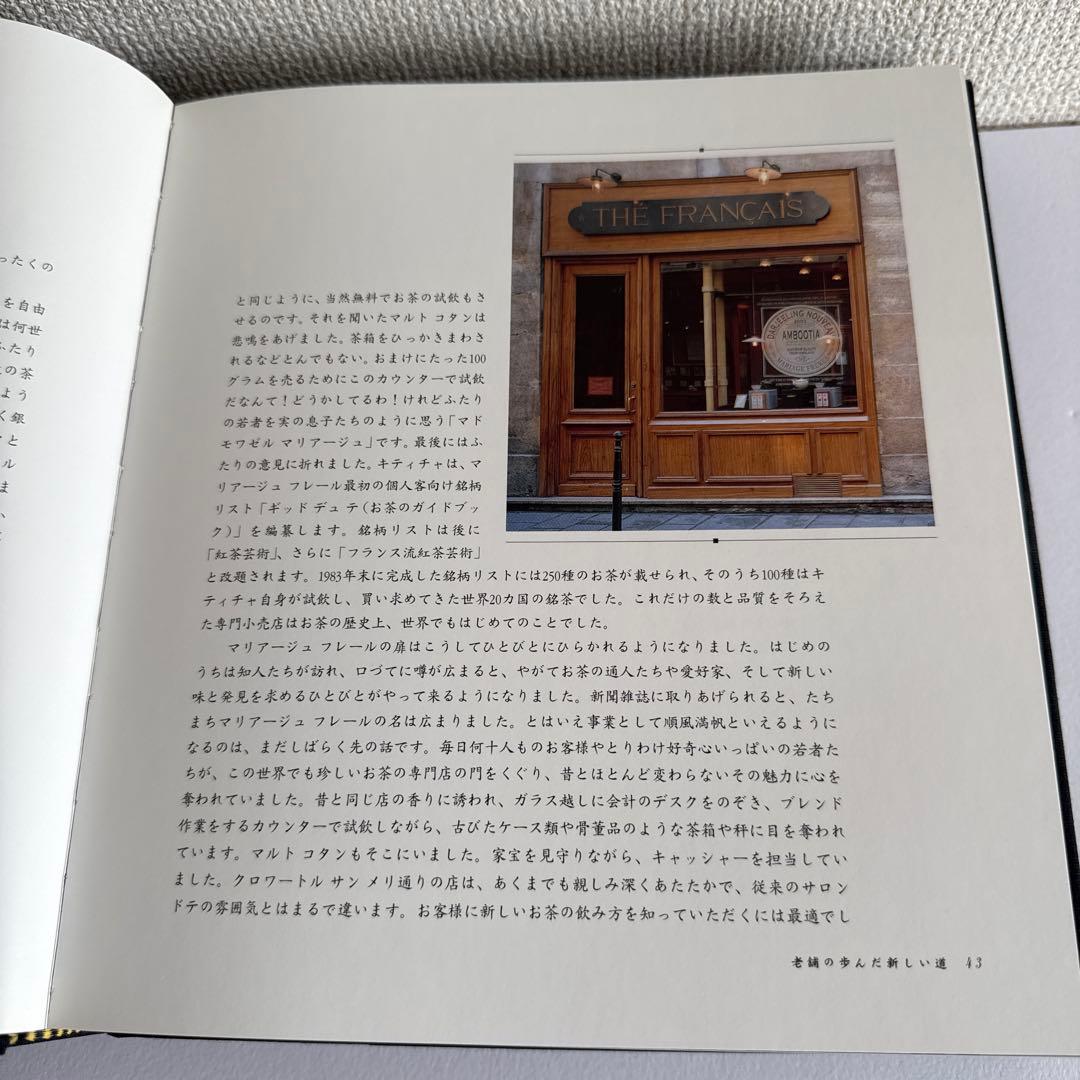 ったくの
を自由
は何世
ふたり
の茶
よう
く銀
と
ル
ま
THÉ FRANÇAIS
DARJEELING NOUVEAU
2007
AMBOOTIA
MARIAGE FRÈRES
と同じように、当然無料でお茶の試飲もさ
せるのです。それを聞いたマルト コタンは
悲鳴をあげました。茶箱をひっかきまわさ
れるなどとんでもない。おまけにたった100
グラムを売るためにこのカウンターで試飲
だなんて！どうかしてるわ！けれどふたり
の若者を実の息子たちのように思う「マド
モワゼル マリアージュ」です。最後にはふ
たりの意見に折れました。キティチャは、マ
リアージュ フレール最初の個人客向け銘柄
リスト「ギッド デュ テ(お茶のガイドブッ
ク)」を編纂します。銘柄リストは後に
「紅茶芸術」、さらに「フランス流紅茶芸術」
と改題されます。1983年末に完成した銘柄リストには250種のお茶が載せられ、そのうち100種はキ
ティチャ自身が試飲し、買い求めてきた世界20カ国の銘茶でした。これだけの数と品質をそろえ
た専門小売店はお茶の歴史上、世界でもはじめてのことでした。
マリアージュ フレールの扉はこうしてひとびとにひらかれるようになりました。はじめの
うちは知人たちが訪れ、口づてに噂が広まると、やがてお茶の通人たちや愛好家、そして新しい
味と発見を求めるひとびとがやって来るようになりました。新聞雑誌に取りあげられると、たち
まちマリアージュ フレールの名は広まりました。とはいえ事業として順風満帆といえるように
なるのは、まだしばらく先の話です。毎日何十人ものお客様やとりわけ好奇心いっぱいの若者た
ちが、この世界でも珍しいお茶の専門店の門をくぐり、昔とほとんど変わらないその魅力に心を
奪われていました。昔と同じ店の香りに誘われ、ガラス越しに会計のデスクをのぞき、ブレンド
作業をするカウンターで試飲しながら、古びたケース類や骨董品のような茶箱や秤に目を奪われ
ています。マルト コタンもそこにいました。家宝を見守りながら、キャッシャーを担当してい
ました。クロワートル サン メリ通りの店は、あくまでも親しみ深くあたたかで、従来のサロン
ドテの雰囲気とはまるで違います。お客様に新しいお茶の飲み方を知っていただくには最適でし
老舗の歩んだ新しい道 43